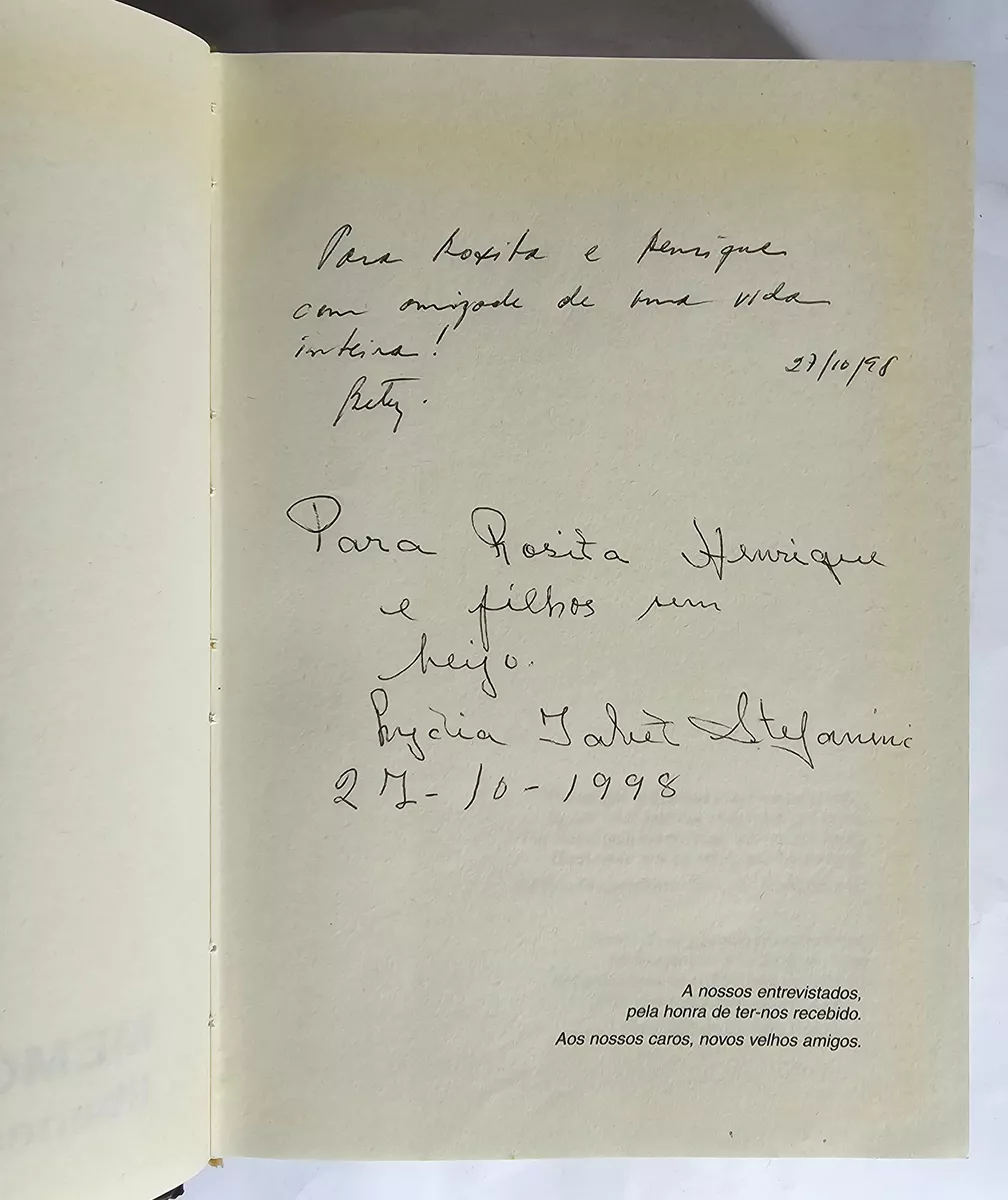 Para Rosita e Henrique
com amizade de uma vida
inteira!
27/10/98
Betty.
Para Rosita Henrique
e filhos um
beijo.
Lydia Stefanini
27-10-1998
A nossos entrevistados,
pela honra de ter-nos recebido.
Aos nossos caros, novos velhos amigos.